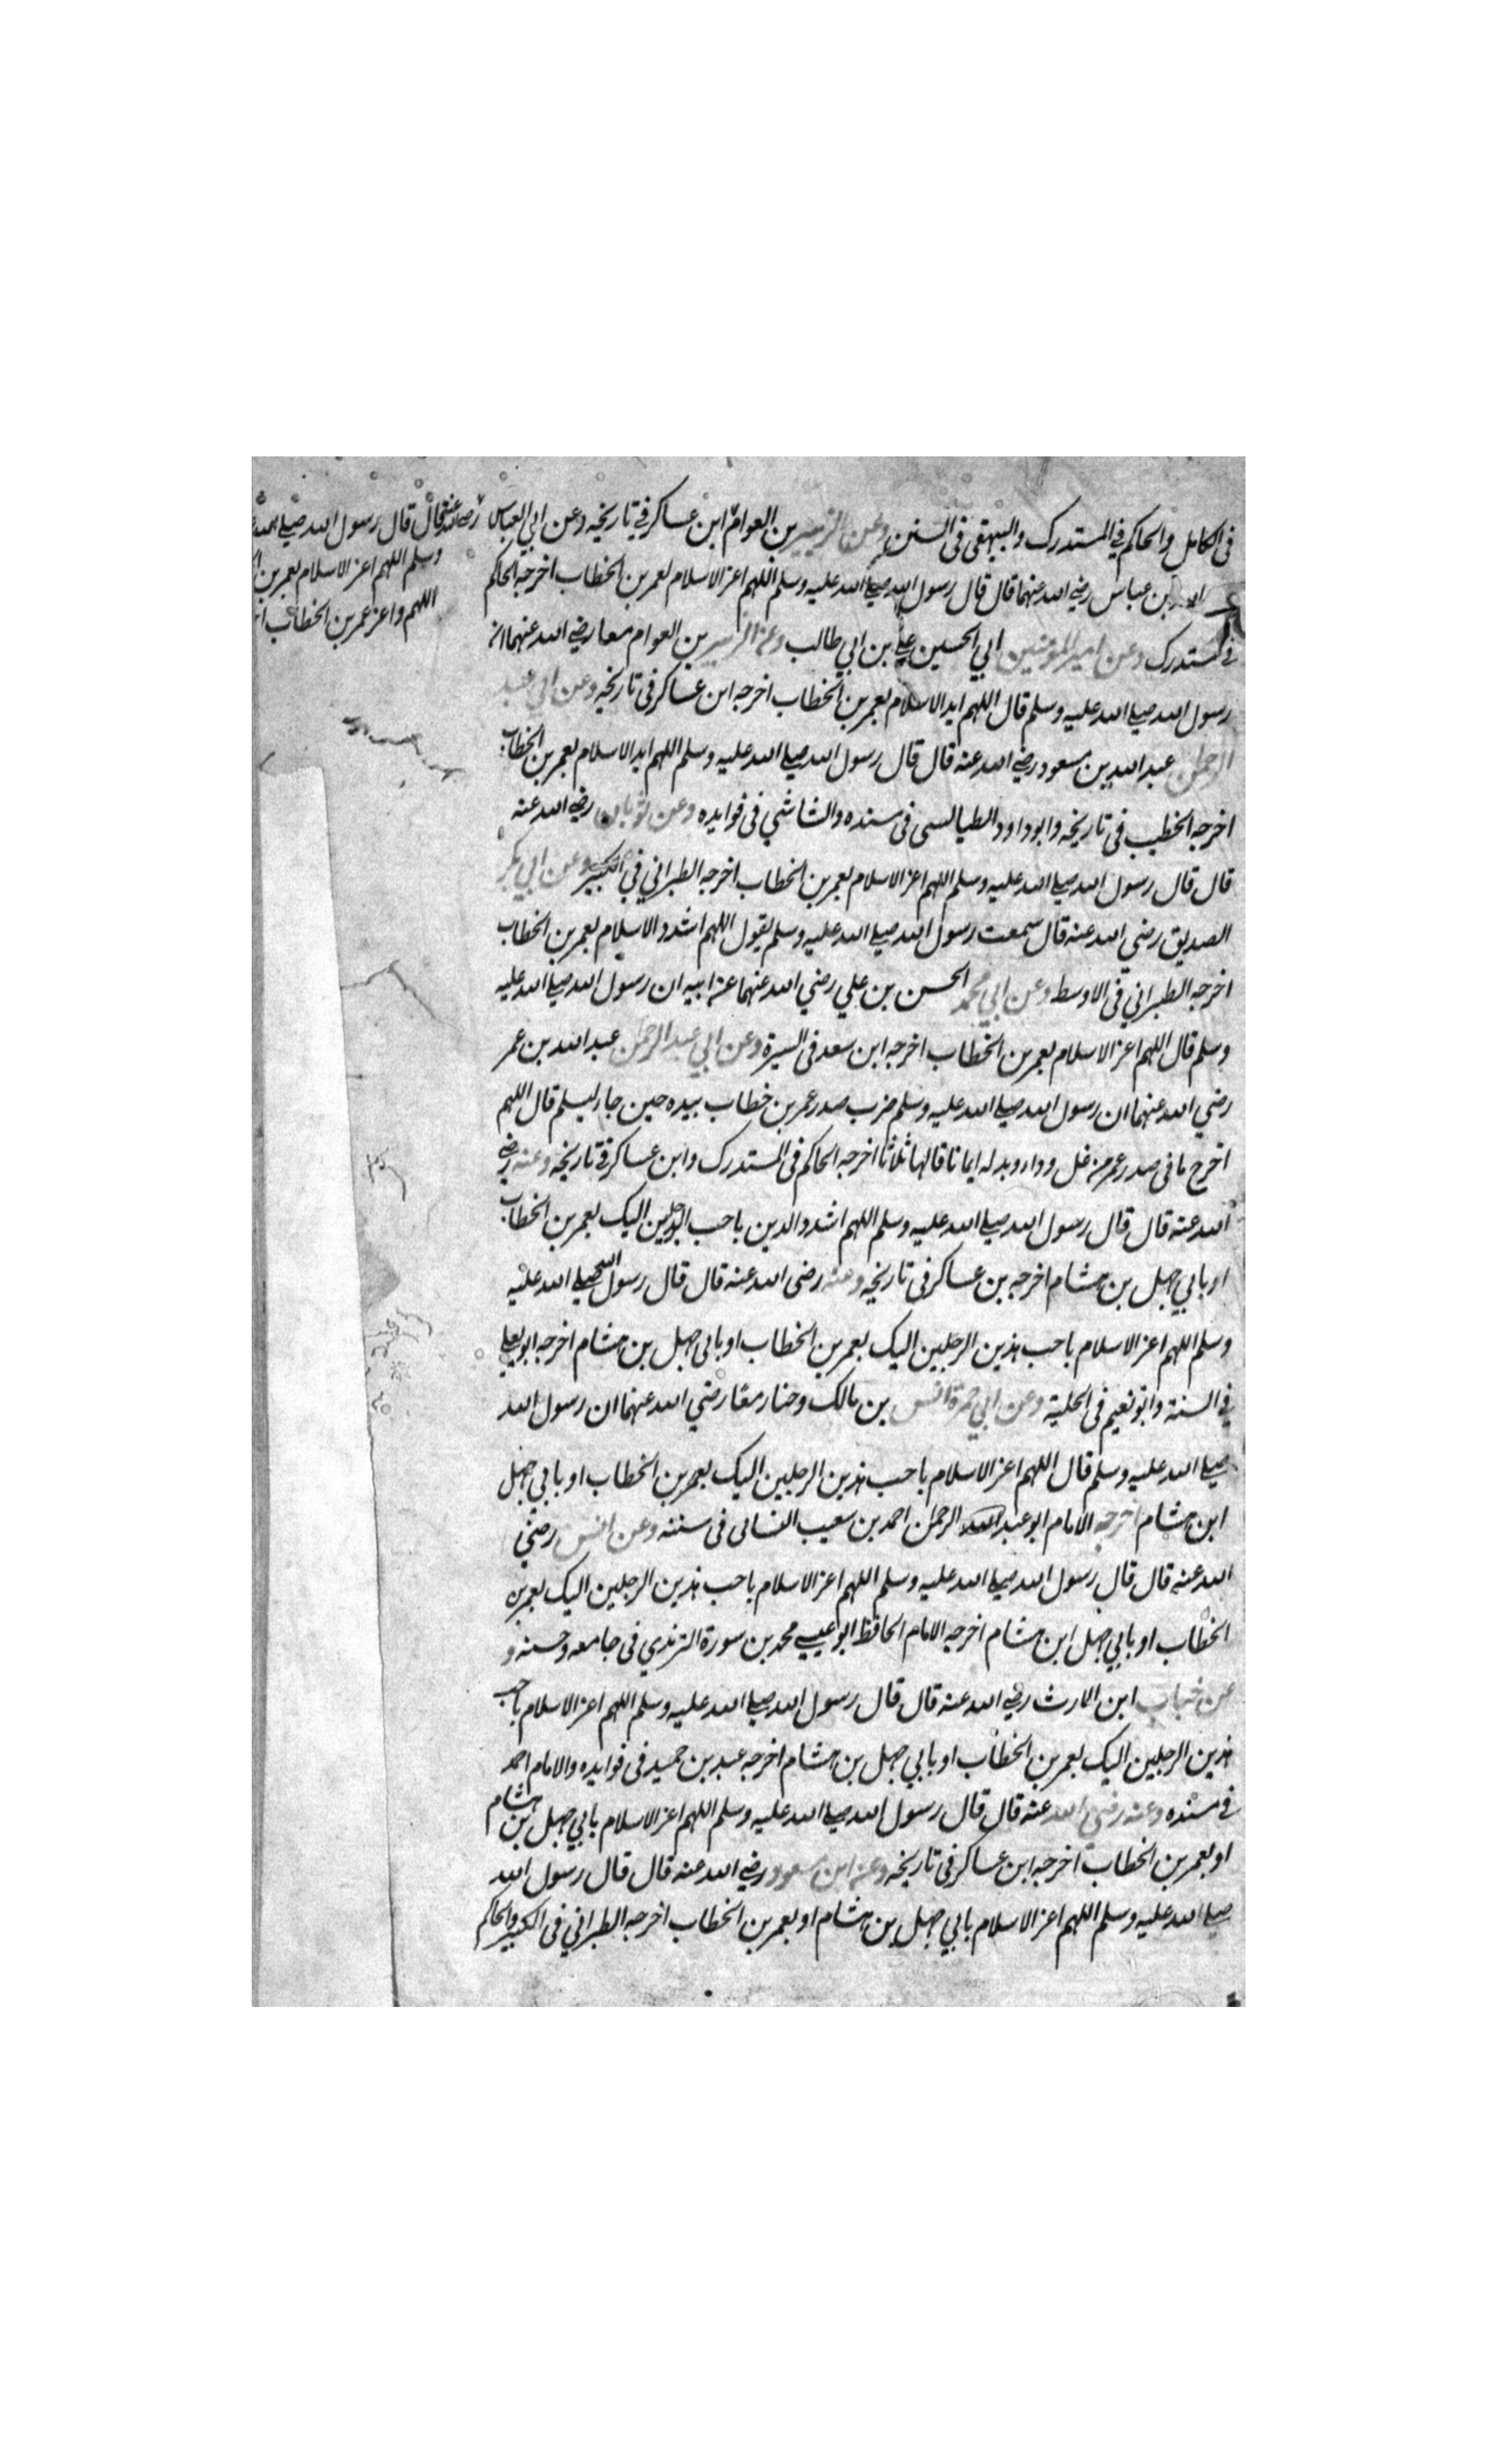 في الكامل والحاكم في المستدرك والبيهقي في السنن وعن الزبير بن العوام ابن عساكر في تاريخه وعن ابي العباس
بن عباس رضي الله عنهما قال قال رسول الله صلى الله عليه وسلم اللهم اعز الاسلام بعمر بن الخطاب اخرجه الحاكم
في المستدرك وعن امير المؤمنين ابي الحسين علي بن ابي طالب وعن الزبير بن العوام معا رضي الله عنهما ان
رسول الله صلى الله عليه وسلم قال اللهم ايد الاسلام بعمر بن الخطاب اخرجه ابن عساكر في تاريخه وعن ابي عبد
الرحمن عبد الله بن مسعود رضي الله عنه قال قال رسول الله صلى الله عليه وسلم اللهم ايد الاسلام بعمر بن الخطاب
اخرجه الخطيب في تاريخه وابو داود الطيالسي في مسنده والشاشي في فوايده وعن ثوبان رضي الله عنه
قال قال رسول الله صلى الله عليه وسلم اللهم اعز الاسلام بعمر بن الخطاب اخرجه الطبراني في الكبير وعن ابي بكر
الصديق رضي الله عنه قال سمعت رسول الله صلى الله عليه وسلم يقول اللهم اشدد الاسلام بعمر بن الخطاب
اخرجه الطبراني في الاوسط وعن ابي محمد الحسن بن علي رضي الله عنهما عن ابيه ان رسول الله صلى الله عليه
وسلم قال اللهم اعز الاسلام بعمر بن الخطاب اخرجه ابن سعد في السيرة وعن ابي عبد الرحمن عبد الله بن عمر
رضي الله عنهما ان رسول الله صلى الله عليه وسلم ضرب صدر عمر بن خطاب بيده حين جاء ليسلم قال اللهم
اخرج ما في صدر عمر من غل وداء وبدله ايمانا قالها ثلاثا اخرجه الحاكم في المستدرك وابن عساكر في تاريخه وعنه رضي
الله عنه قال قال رسول الله صلى الله عليه وسلم اللهم اشدد الدين باحب الرجلين اليك بعمر بن الخطاب
او بابي جهل بن هشام اخرجه بن عساكر في تاريخه وعنه رضى الله عنه قال قال رسول الله صلى الله عليه
وسلم اللهم اعز الاسلام باحب هذين الرجلين اليك بعمر بن الخطاب او بابي جهل بن هشام اخرجه ابو يعلى
في السنة وابو نعيم في الحلية وعن ابي حمزة انس بن مالك وخباب معًا رضي الله عنهما ان رسول الله
صلى الله عليه وسلم قال اللهم اعز الاسلام باحب هذين الرجلين اليك بعمر بن الخطاب او بابي جهل
ابن هشام اخرجه الامام ابو عبد الرحمن احمد بن شعيب النسائى فى سننه وعن انس رضي
الله عنه قال قال رسول الله صلى الله عليه وسلم اللهم اعز الاسلام باحب هذين الرجلين اليك بعمر بن
الخطاب او بابي جهل ابن هشام اخرجه الامام الحافظ ابو عيسى محمد بن سورة الترمذي في جامعه وحسنه و
عن خباب ابن الارث رضي الله عنه قال قال رسول الله صلى الله عليه وسلم اللهم اعز الاسلام باحب
هذين الرجلين اليك بعمر بن الخطاب او بابي جهل بن هشام اخرجه عبد بن حميد في فوايده والامام احمد
في مسنده وعنه رضي الله عنه قال قال رسول الله صلى الله عليه وسلم اللهم اعز الاسلام بابي جهل بن هشام
او بعمر بن الخطاب اخرجه ابن عساكر في تاريخه وعن ابن مسعود رضي الله عنه قال قال رسول الله
صلى الله عليه وسلم اللهم اعز الاسلام بابي جهل بن هشام او بعمر بن الخطاب اخرجه الطبراني في الكبير والحاكم
رضي الله عنه قال قال رسول الله صلى الله
وسلم اللهم اعز الاسلام بعمر بن
اللهم واعز عمر بن الخطاب